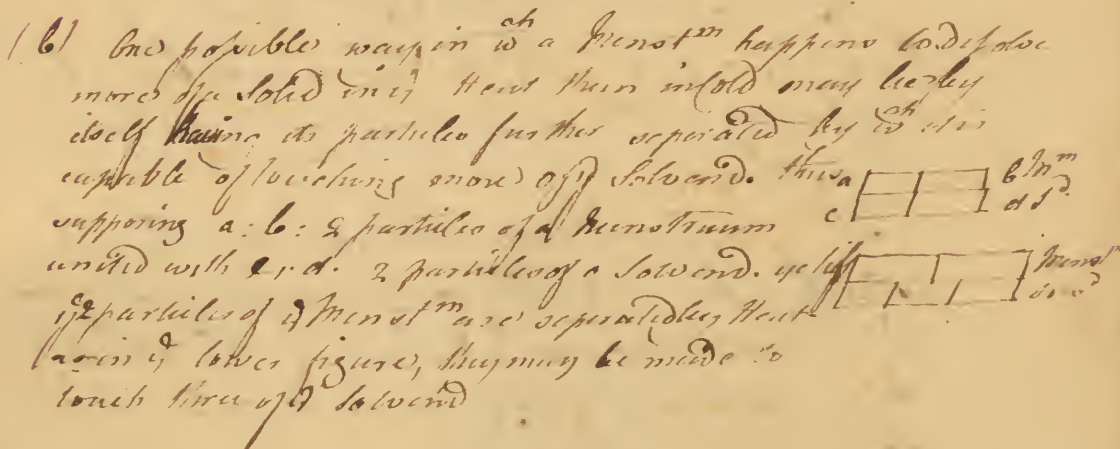 (b) One possible way in wch a Menstm happens to disolve
more of a Solid in ye Heat then in Cold may be by
itself having its particles further seperated by wch it is
capable of touching more of ye Solvend. thus a b Mm
supposing a: b: 2 particles of a Menstruum c d Sd
united with c, d. 2 particles of a Solvend. yet if Menst
ye 2 particles of ye Menstm are seperated by Heat
as in ye lower figure, they may be made to
touch three of ye Solvend